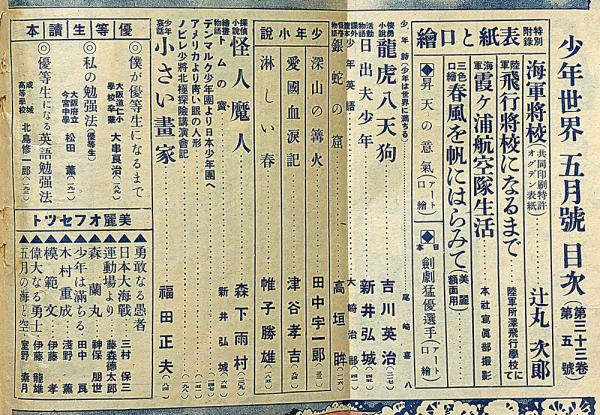 少年世界 五月號 目次 (第三十三卷 第五號)
特別附錄 表紙と口繪
海軍將校(共同印刷特許 オグデン表紙)……辻丸 次郎
陸軍飛行將校になるまで……陸軍所澤飛行學校にて
海軍霞ヶ浦航空隊生活……本社寫眞部撮影
三色口繪 春風を帆にはらみて(美麗 額面用)
◆昇天の意氣(アート口繪)
◆日本一劍劇猛優選手(アート口繪)
少年詩(少年は世界に満ちる)……尾崎喜八
俠勇小說 龍虎八天狗……吉川英治
活動物語 日出夫少年……新井弘城
少年英語……大崎治郎
怪奇物語 銀蛇の窟……高垣眸
少年小說
深山の篝火……田中宇一郎
愛國血淚記……津谷孝吉
淋しい春……帷子勝雄
探偵小說 怪人魔人……森下雨村
繪畫物語 トムの寶……新井弘城
デンマルク少年團より日本少年團へ
アメリカより靑い眼の人形
ノビレ少將北極探險講演會記
少年哀話 小さい畫家……福田正夫
優等生讀本
◎僕が優等生になるまで
大阪道仁小學校卒業 大串良治
◎私の勉强法(優等生)
大阪府立今宮中學 松田薰
◎優等生になる英語勉强法
成城高等學校 北島修一郎
美麗オフセツト
▲勇敢なる愚者
▲日本大海戰……三村保三
▲運動場より……藤森德太郎
▲森蘭丸……神保朋世
▲少年は滿ちる……田中良
▲木村重成……淺野薰
▲模範文……伊藤
▲偉大なる勇士……伊藤龍雄
▲五月の海と空……室野素月